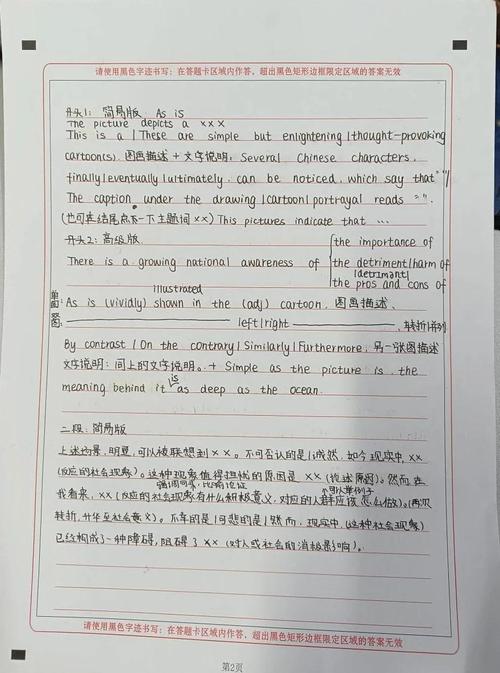 请使用黑色字迹书写：在答题卡区域内作答，超出黑色矩形边框限定区域的答案无效
开头1：简易版 As is
The picture depicts a x x x
This is a / These are simple but enlightening / thought-provoking
cartoon(s). 图画描述 + 文字说明：Several Chinese characters,
finally / eventually / ultimately, can be noticed, which say that " " /
The caption under the drawing / cartoon / portrayal reads " ".
(也可在结尾点下一下主题词 xx) This pictures indicate that ...
开头2：高级版
the importance of
There is a growing national awareness of
the detriment / harm of
the pros and cons of
illustrated
单图：As is (vividly) shown in the (adj) cartoon, 图画描述、
双图： left / right 、转折/并列
By contrast / On the contrary / Similarly / Furthermore, 另一张图描述
文字说明：同上的文字说明。+ Simple as the picture is, the
meaning behind it is as deep as the ocean.
二段：简易版
上述场景，明显，可以被联想到 xx。不可否认的是/诚然，如今现实中，xx
(反应的社会现象)。这种现象值得担忧的原因是 xx (论述原因)。然而在
我看来，xx (反应的社会现象有什么积极意义，对应的人群应该怎么做)。(再次
转折，升华至社会意义)。不幸的是/可悲的是/然而，现实中，(这种社会现象)
已经构成了一种障碍，阻碍了 xx (对人或社会的消极影响)。
请使用黑色字迹书写：在答题卡区域内作答，超出黑色矩形边框限定区域的答案无效
第2页